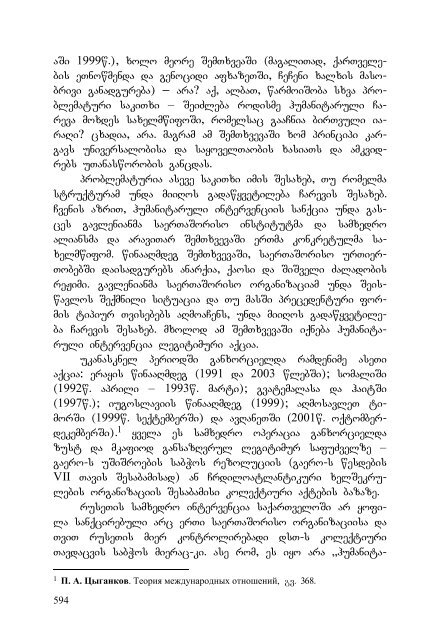 აში 1999წ.), ხოლო მეორე შემთხვევაში (მაგალითად, ქართველე-
ბის ეთნოწმენდა და გენოციდი აფხაზეთში, ჩეჩენი ხალხის მასო-
ბრივი განადგურება) – არა? აქ, ალბათ, წარმოიშობა სხვა პრო-
ბლემატური საკითხი – შეიძლება როდისმე ჰუმანიტარული ჩა-
რევა მოხდეს სახელმწიფოში, რომელსაც გააჩნია ბირთვული ია-
რაღი? ცხადია, არა. მაგრამ ამ შემთხვევაში ხომ პრინციპი კარ-
გავს უნივერსალობისა და საყოველთაობის ხასიათს და ამკვიდ-
რებს უთანასწორობის განცდას.
პრობლემატურია ასევე საკითხი იმის შესახებ, თუ რომელმა
სტრუქტურამ უნდა მიიღოს გადაწყვეტილება ჩარევის შესახებ.
ჩვენის აზრით, ჰუმანიტარული ინტერვენციის სანქცია უნდა გას-
ცეს გავლენიანმა საერთაშორისო ინსტიტუტმა და სამხედრო
ალიანსმა და არავითარ შემთხვევაში ერთმა კონკრეტულმა სა-
ხელმწიფომ. წინააღმდეგ შემთხვევაში, საერთაშორისო ურთიერ-
თობებში დაისადგურებს ანარქია, ქაოსი და შიშველი ძალადობის
რეჟიმი. გავლენიანმა საერთაშორისო ორგანიზაციამ უნდა შეის-
წავლოს შექმნილი სიტუაცია და თუ მასში პრეცედენტური ფორ-
მის ტიპიურ თვისებებს აღმოაჩენს, უნდა მიიღოს გადაწყვეტილე-
ბა ჩარევის შესახებ. მხოლოდ ამ შემთხვევაში იქნება ჰუმანიტა-
რული ინტერვენცია ლეგიტიმური აქცია.
უკანასკნელ პერიოდში განხორციელდა რამდენიმე ასეთი
აქცია: ერაყის წინააღმდეგ (1991 და 2003 წლებში); სომალიში
(1992წ. აპრილი – 1993წ. მარტი); გვატემალასა და ჰაიტში
(1997წ.); იუგოსლავიის წინააღმდეგ (1999); აღმოსავლეთ ტი-
მორში (1999წ. სექტემბერში) და ავღანეთში (2001წ. ოქტომბერ-
დეკემბერში).¹ ყველა ეს სამხედრო ოპერაცია განხორციელდა
ზუსტ და მკაფიოდ განსაზღვრულ ლეგიტიმურ საფუძველზე –
გაერო-ს უშიშროების საბჭოს რეზოლუციის (გაერო-ს წესდების
VII თავის შესაბამისად) ან ჩრდილოატლანტიკური ხელშეკრუ-
ლების ორგანიზაციის შესაბამისი კოლექტიური აქტების ბაზაზე.
რუსეთის სამხედრო ინტერვენცია საქართველოში არ ყოფი-
ლა სანქცირებული არც ერთი საერთაშორისო ორგანიზაციისა და
თვით რუსეთის მიერ კონტროლირებადი დსთ-ს კოლექტიური
თავდაცვის საბჭოს მიერაც-კი. ასე რომ, ეს იყო არა „ჰუმანიტა-
¹ П. А. Цыганков. Теория международных отношений, გვ. 368.
594